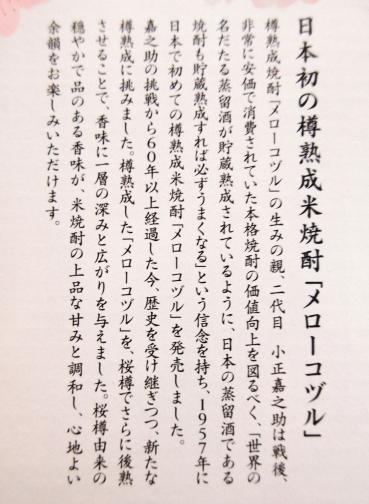 日本初の樽熟成米焼酎「メローコヅル」
樽熟成焼酎「メローコヅル」の生みの親、二代目　小正嘉之助は戦後、
非常に安価で消費されていた本格焼酎の価値向上を図るべく、「世界の
名だたる蒸留酒が貯蔵熟成されているように、日本の蒸留酒である
焼酎も貯蔵熟成すれば必ずうまくなる」という信念を持ち、1957年に
日本で初めての樽熟成米焼酎「メローコヅル」を発売しました。
嘉之助の挑戦から60年以上経過した今、歴史を受け継ぎつつ、新たな
樽熟成に挑みました。樽熟成した「メローコヅル」を、桜樽でさらに後熟
させることで、香味に一層の深みと広がりを与えました。桜樽由来の
穏やかで品のある香味が、米焼酎の上品な甘みと調和し、心地よい
余韻をお楽しみいただけます。